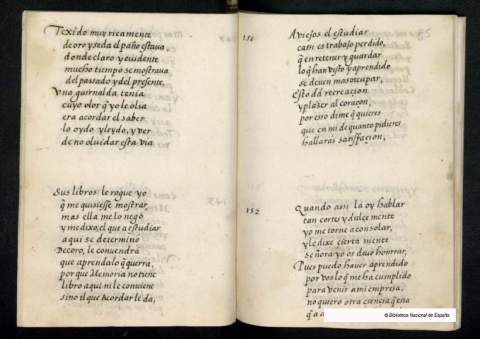 Texido muy ricamente
de oro y seda el paño estaua,
donde claro y euidente
mucho tiempo se mostraua
del pasado y del presente,
Vna guirnalda tenia
cuyo olor q̃ yo le olia
era acordar el saber
lo oydo y leydo, y ver
de no oluidar esta via
Sus libros le rogue yo
q̃ me quisiesse mostrar,
mas ella me lo nego
y me dixo, el que a estudiar
aqui se determino
Decoro, le conuendra
que aprendalo q̃ querra,
por que Memoria no tiene
libro aqui, ni le conuiene
sino el que Acordar le da,
151
A viejos el estudiar
casi es trabajo perdido,
q̃ en retener y guardar
lo q̃ han visto y aprendido
se deuen mas ocupar,
Esto dá recreacion
y plazer al coraçon,
por esso dime q̃ quieres
que en mi de quanto pidieres
hallaras satisfaçion,
152
Quando assi la oy hablar
tan cortes y dulçe mente
yo me torne a consolar,
y le dixe çierta mente
señora yo os deuo honrrar,
Pues puedo hauer aprendido
por vos lo q̃ me ha cumplido
para venir a mi empresa,
no quiero otra ciençia
© Biblioteca Nacional de España